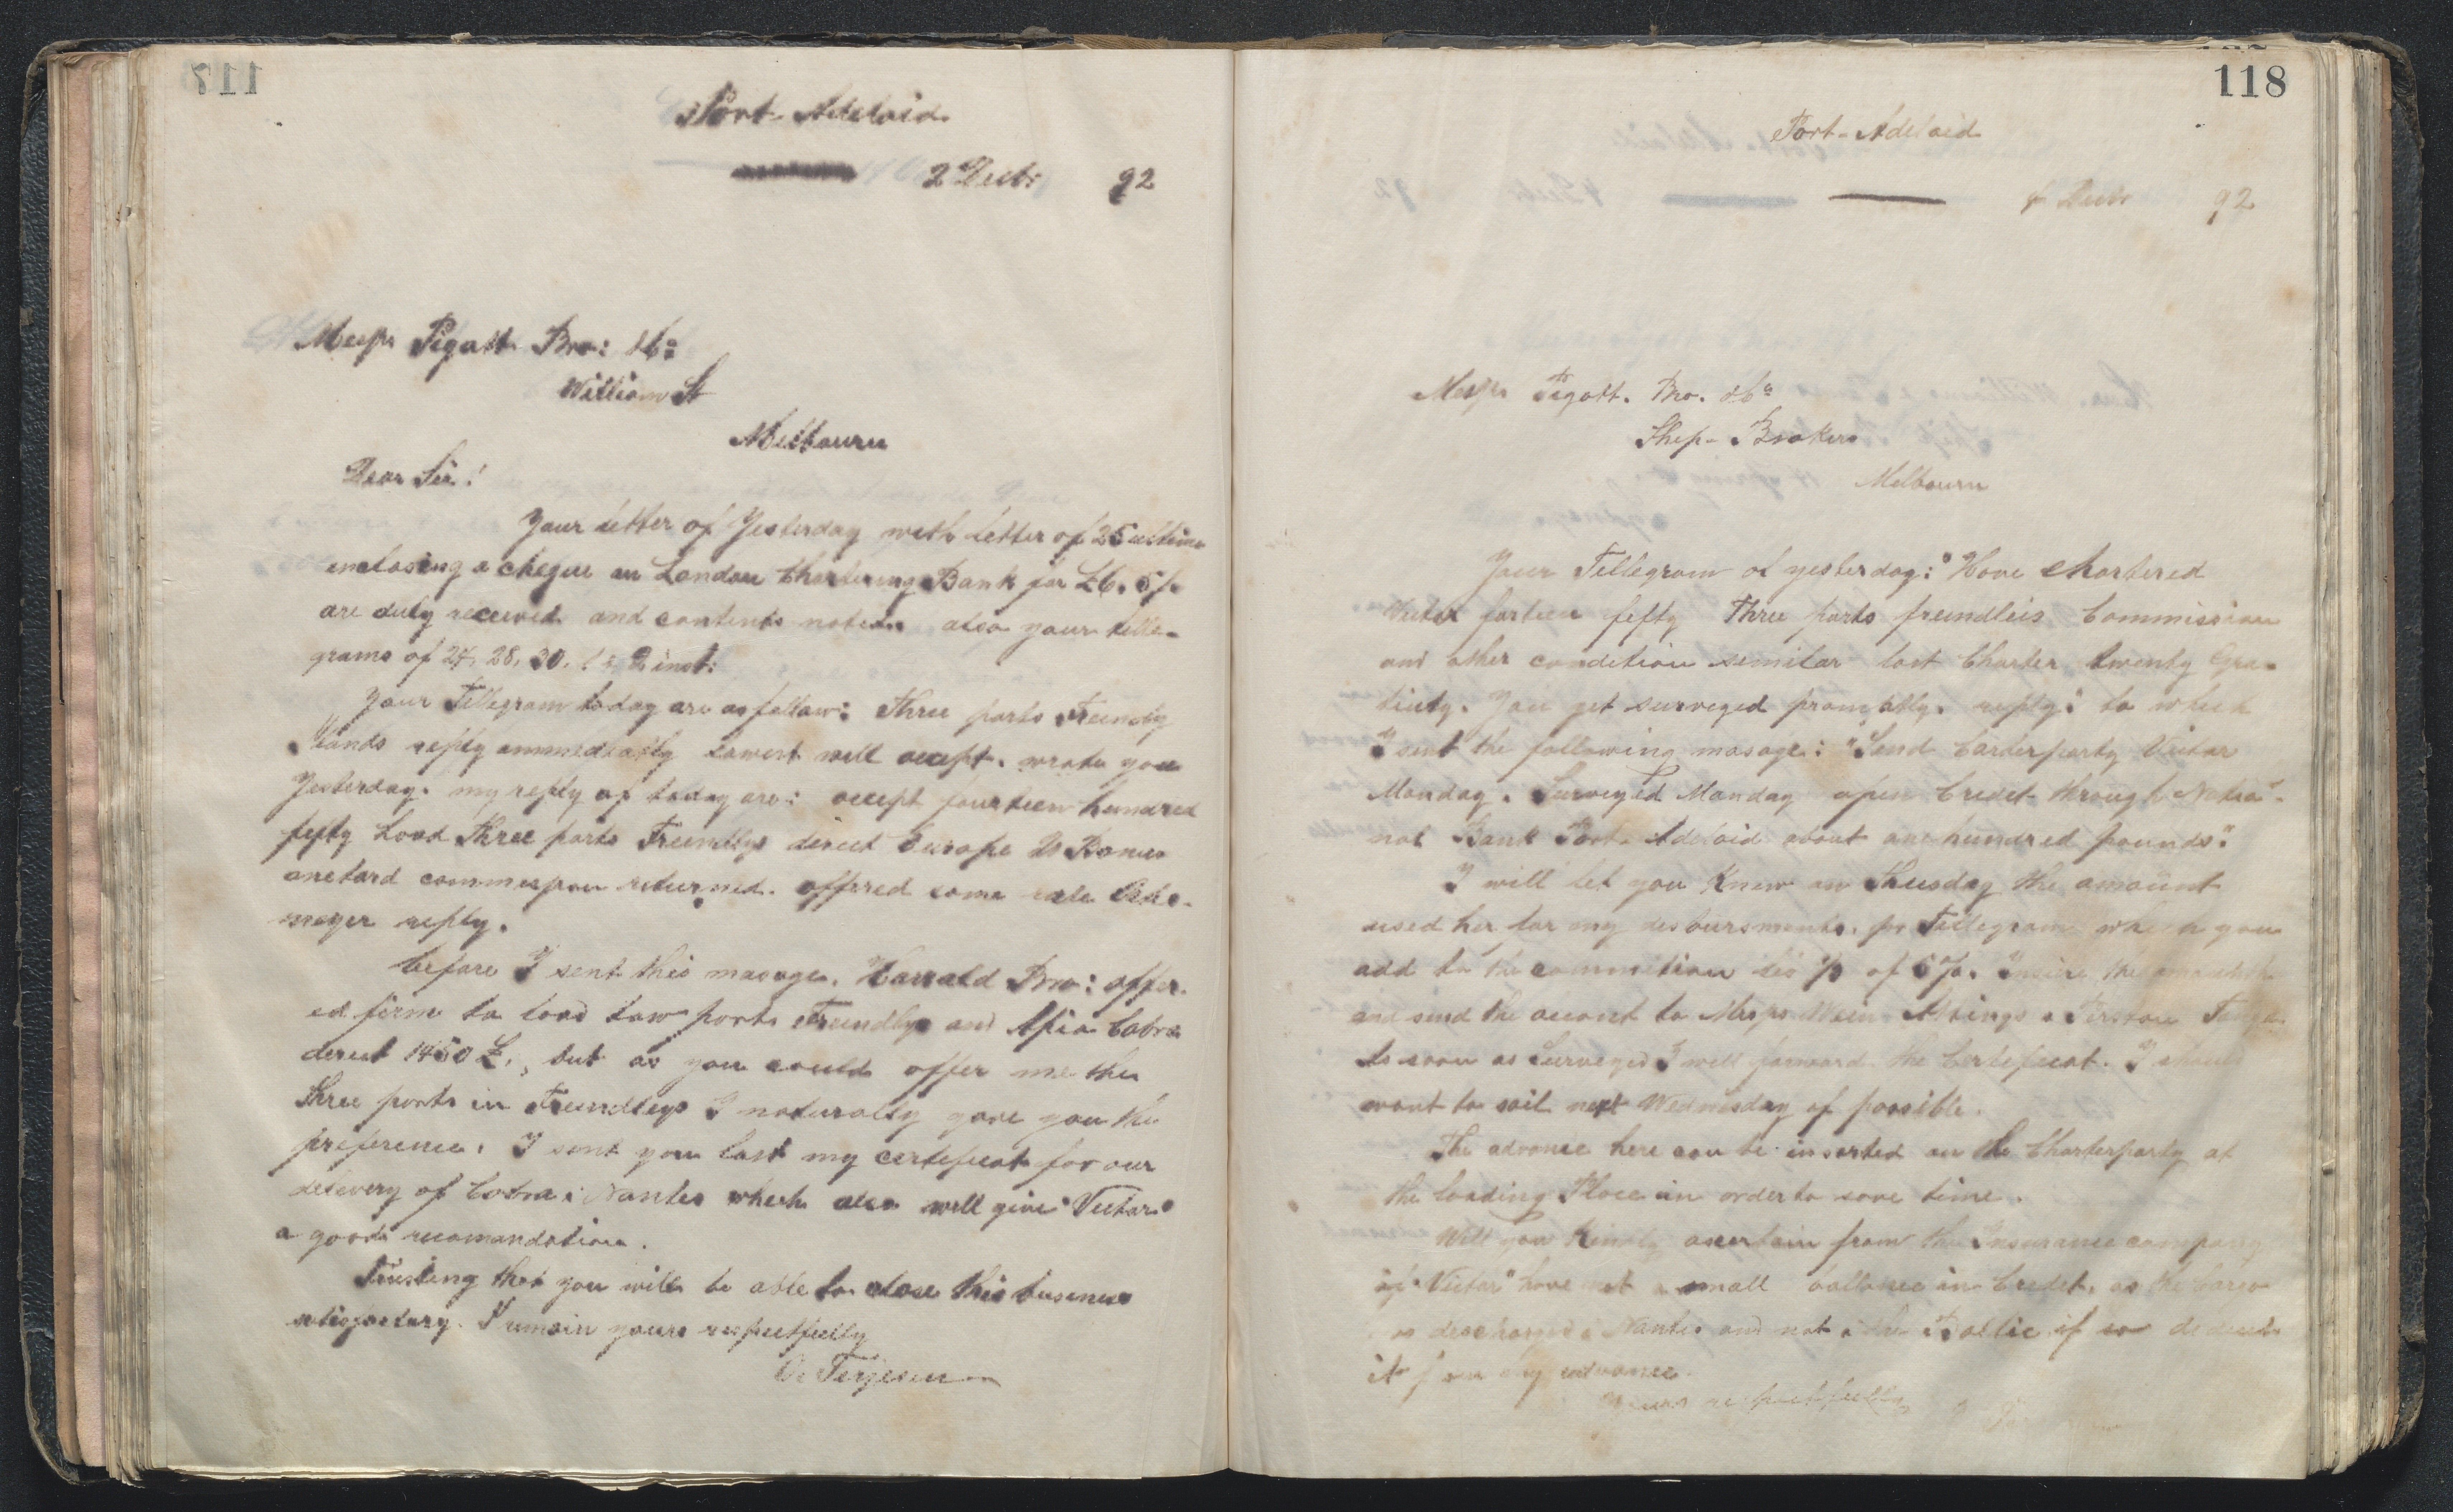 117
Port-Adelaid
2 Decbr 92
Messrs Pigott Bro: & Co:
William St
Melbourn
Dear Sir!
Your letter of Yesterday with letter of 25 ultimo
enclosing a cheque on London Chartering Bank for £6. 5/-
are duly received and contents noticed also your telle-
grams of 24, 28, 30, 1 & 2 inst:
Your Tellegram today are as follow: Three ports Freindly
Ilands reply ammediatly lowest will accept. wrote you
Yesterday. my reply of today are: accept fourteen hundred
fefty Load Three ports Freindlys direct Europe 20 Bonus
onetard commespon returned. offered same rate
meyer reply.
before I sent this masage, Harrold Bro: offer-
ed firm to load tow ports Freindlys and Apia Cobra
derect 1450 £., but as you could offer me the
three ports in Freindleys I naturally gave you the
preference. I sent you last my certeficat for our
delevery of Cobra i Nantes which also will give "Victor"
a good recomandation.
Trusting that you will be able to close this businness
satisfactary. I remain yours respectfully
O. Terjesen
118
Port-Adelaid
4 Decbr 92
Messrs Pigott. Bro. & Co
Shep-Brokers
Melbourn
Your Tellegram of yesterday: "Have chartered
Victor forteen fefty Three ports freindleis Commission
and other condetion semilar last Charter twenty Gra-
tiuty. You get surveyed promptly. reply." to which
I sent the following masage: "Send Carterparty Victor
Monday. Surveyed Monday open Credet through Natio-
nal Bank Port-Adelaid about one hundred pounds."
I will let you Know on Thusday the amount
used her for my desbursments, pr Tellegram which you
add to the commition les 1/3 of 5%. Insure the amount
and send the account to Messrs Wm & Tønsberg
As soon as Surveyed I will forward the Certeficat. I should
want to sail next Wednesday if possible.
The advance here can be inserted on the Charterparty at
the loading Place in order to save time.
Will you Kindly ascertain from the Insurance company
if "Victor" have not a small ballance in Credet, as the Cargo
is descharged i Nantes and not i the Baltic if so deduct
it from my advance.
Yours respectfully